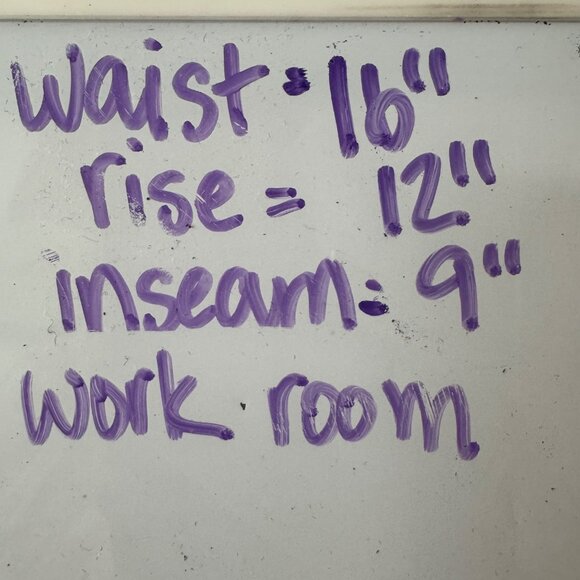 waist = 16"
rise = 12"
inseam = 9"
work room